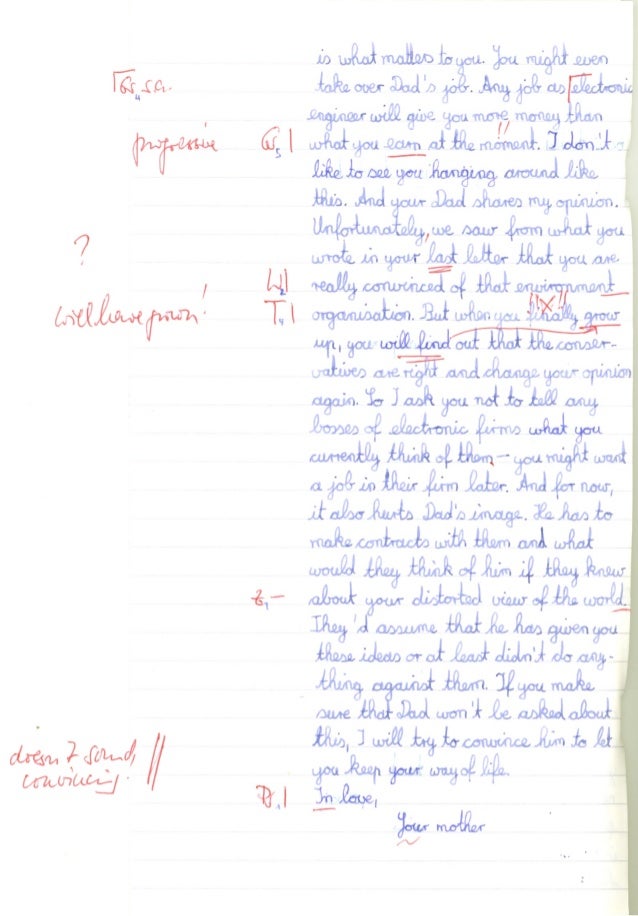 is what matters to you. You might even
take over Dad's job. Any job as electronic
engineer will give you more money than
progressive
what you earn at the moment. I don't
like to see you hanging around like
this. And your Dad shares my opinion.
Unfortunately, we saw from what you
?
wrote in your last letter that you are
really convinced of that environment
will have grown!
organisation. But when you finally grow
up, you will find out that the conser-
vatives are right and change your opinion
again. So I ask you not to tell any
bosses of electronic firms what you
currently think of them – you might want
a job in their firm later. And for now,
it also hurts Dad's image. He has to
make contracts with them and what
would they think of him if they knew
about your distorted view of the world.
They'd assume that he has given you
these ideas or at least didn't do any-
thing against them. If you make
sure that Dad won't be asked about
doesn't sound
this, I will try to convince him to let
convincing.
you keep your way of life.
In love,
Your mother